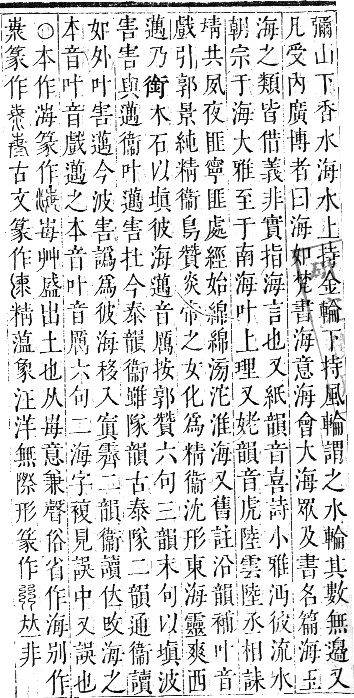 彌山下香水海水上持金輪下持風輪謂之水輪其數無邊又
凡受內廣博者曰海如梵書海意海會大海眾及書名篇海玉
海之類皆借義非實指海言也又紙韻音喜詩小雅沔彼流水
朝宗于海大雅至于南海叶上理又姥韻音虎陸雲陸丞相誄
靖共夙夜匪寧匪處經始綿綿滂沱淮海又舊註沿韻補叶音
戲引郭景純精衞鳥贊炎帝之女化爲精衞沈形東海靈爽西
邁乃銜木石以塡彼海邁音厲按郭贊六句三韻末句以塡波
害害與邁衞叶邁害在今泰韻衞雖隊韻古泰隊二韻通衞讀
如外叶害邁今波害譌爲彼海移入寘霽二韻衞讀依改海之
本音叶音戲邁之本音叶音厲六句二海字複見誤中又誤也
○本作海篆作毎艸盛出土也从毎意兼聲俗省作海別作
篆作古文篆作精薀象汪洋無際形篆作𠀤非